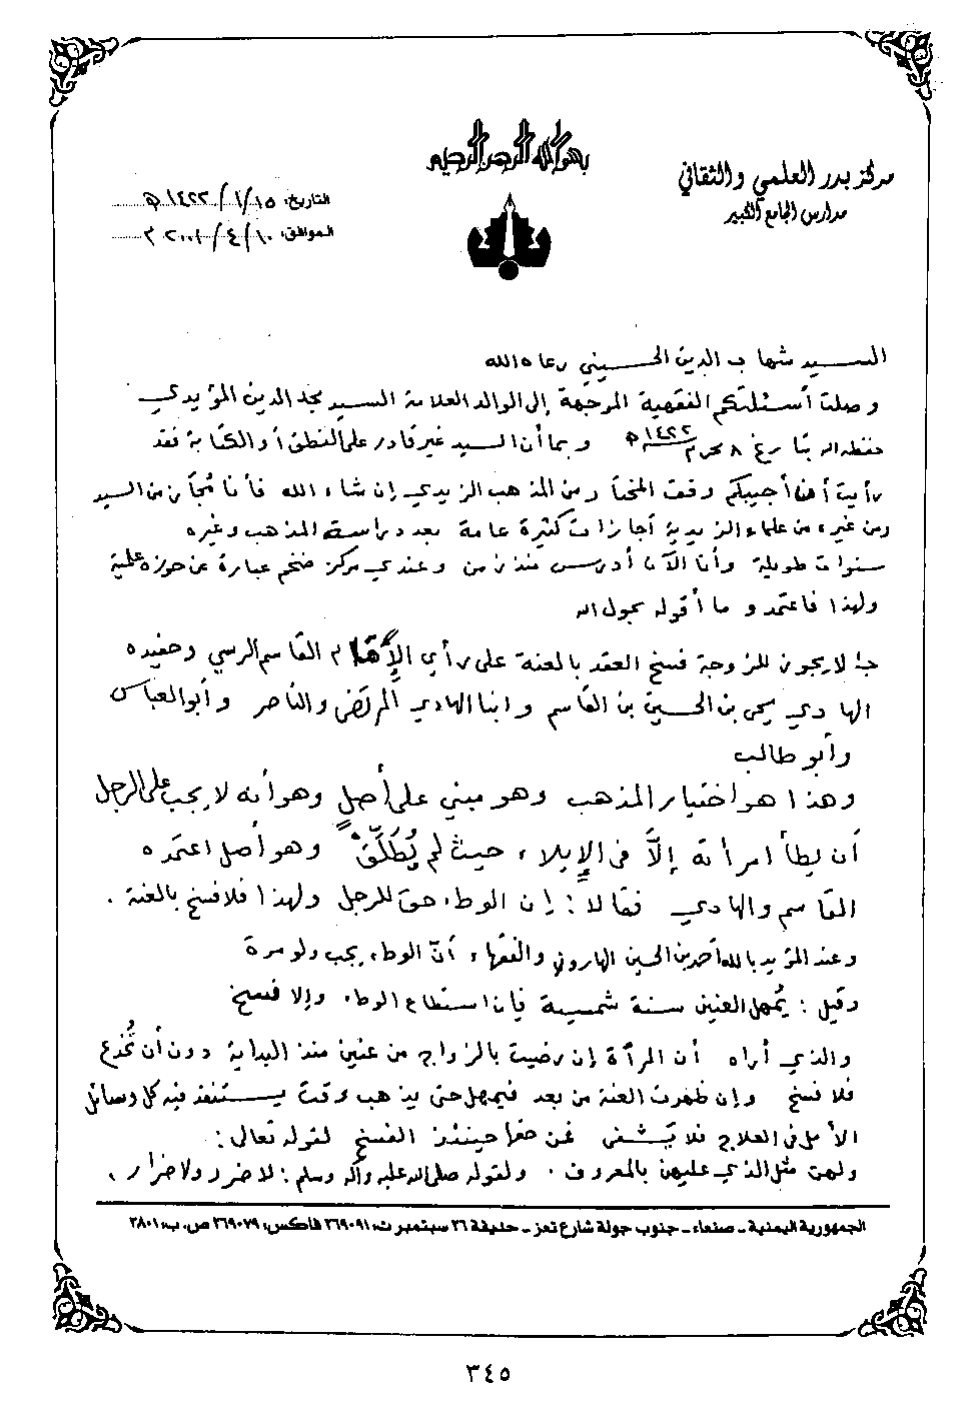 بسم الله الرحمن الرحيم
مركز بدر العلمي والثقافي
مدارس الجامع الكبير
التاريخ: ١٥/ ١/ ١٤٢٢ هـ
الموافق: ١٠/ ٤/ ٢٠٠١ م
السيد شهاب الدين الحسيني رعاه الله
وصلت أسئلتكم الفقهية الموجهة إلى الوالد العلامة السيد مجد الدين المؤيدي
حفظه الله بتاريخ ٨ محرم ١٤٢٢ هـ وبما أن السيد غير قادر على النطق أو الكتابة فقد
رأيت أن أجيبكم وفق المختار من المذهب الزيدي إن شاء الله فأنا مُجاز من السيد
ومن غيره من علماء الزيدية أجازات كثيرة عامة بعد دراسة المذهب وغيره
سنوات طويلة وأنا الآن أدرس منذ زمن وعندي مركز ضخم عبارة عن حوزه علمية
ولهذا فاعتمدوا ما أقوله بحول الله
جـ١ لا يجوز للزوجة فسخ العقد بالعنة على رأي الإمام القاسم الرسي وحفيده
الهادي يحيى بن الحسين بن القاسم وابنا الهادي المرتضى والناصر وأبو العباس
وأبو طالب
وهذا هو اختيار المذهب وهو مبني على أصل وهو أنه لا يجب على الرجل
أن يطأ امرأته إلاَّ في الإيلاء حيث لم يُطَلِّقْ وهو أصل اعتمده
القاسم والهادي فقالا: إن الوطء حق للرجل ولهذا فلا فسخ بالعنة.
وعند المؤيد بالله أحمد بن الحسين الهاروني والفقهاء أنّ الوطء يجب ولو مرة
وقيل: يُمهل العنين سنة شمسية فإن استطاع الوطء وإلا فسخ
والذي أراه أن المرأة إن رضيت بالزواج من عنين منذ البداية دون أن تُخدع
فلا فسخ وإن ظهرت العنة من بعد فيمهل حتى يذهب وقت يستنفد فيه كل وسائل
الأمل في العلاج فلا يُشفى فمن حقها حينئذ الفسخ لقوله تعالى:
ولهن مثل الذي عليهن بالمعروف. ولقوله صلى الله عليه وآله وسلم: لا ضرر ولا ضرار.
الجمهورية اليمنية - صنعاء - جنوب جولة شارع تعز - حليفة ٢٦ سبتمبر ت: ٢٦٩٠٩١ فاكس: ٢٦٩٠٧٩ ص. ب: ٢٨٠١
٣٤٥